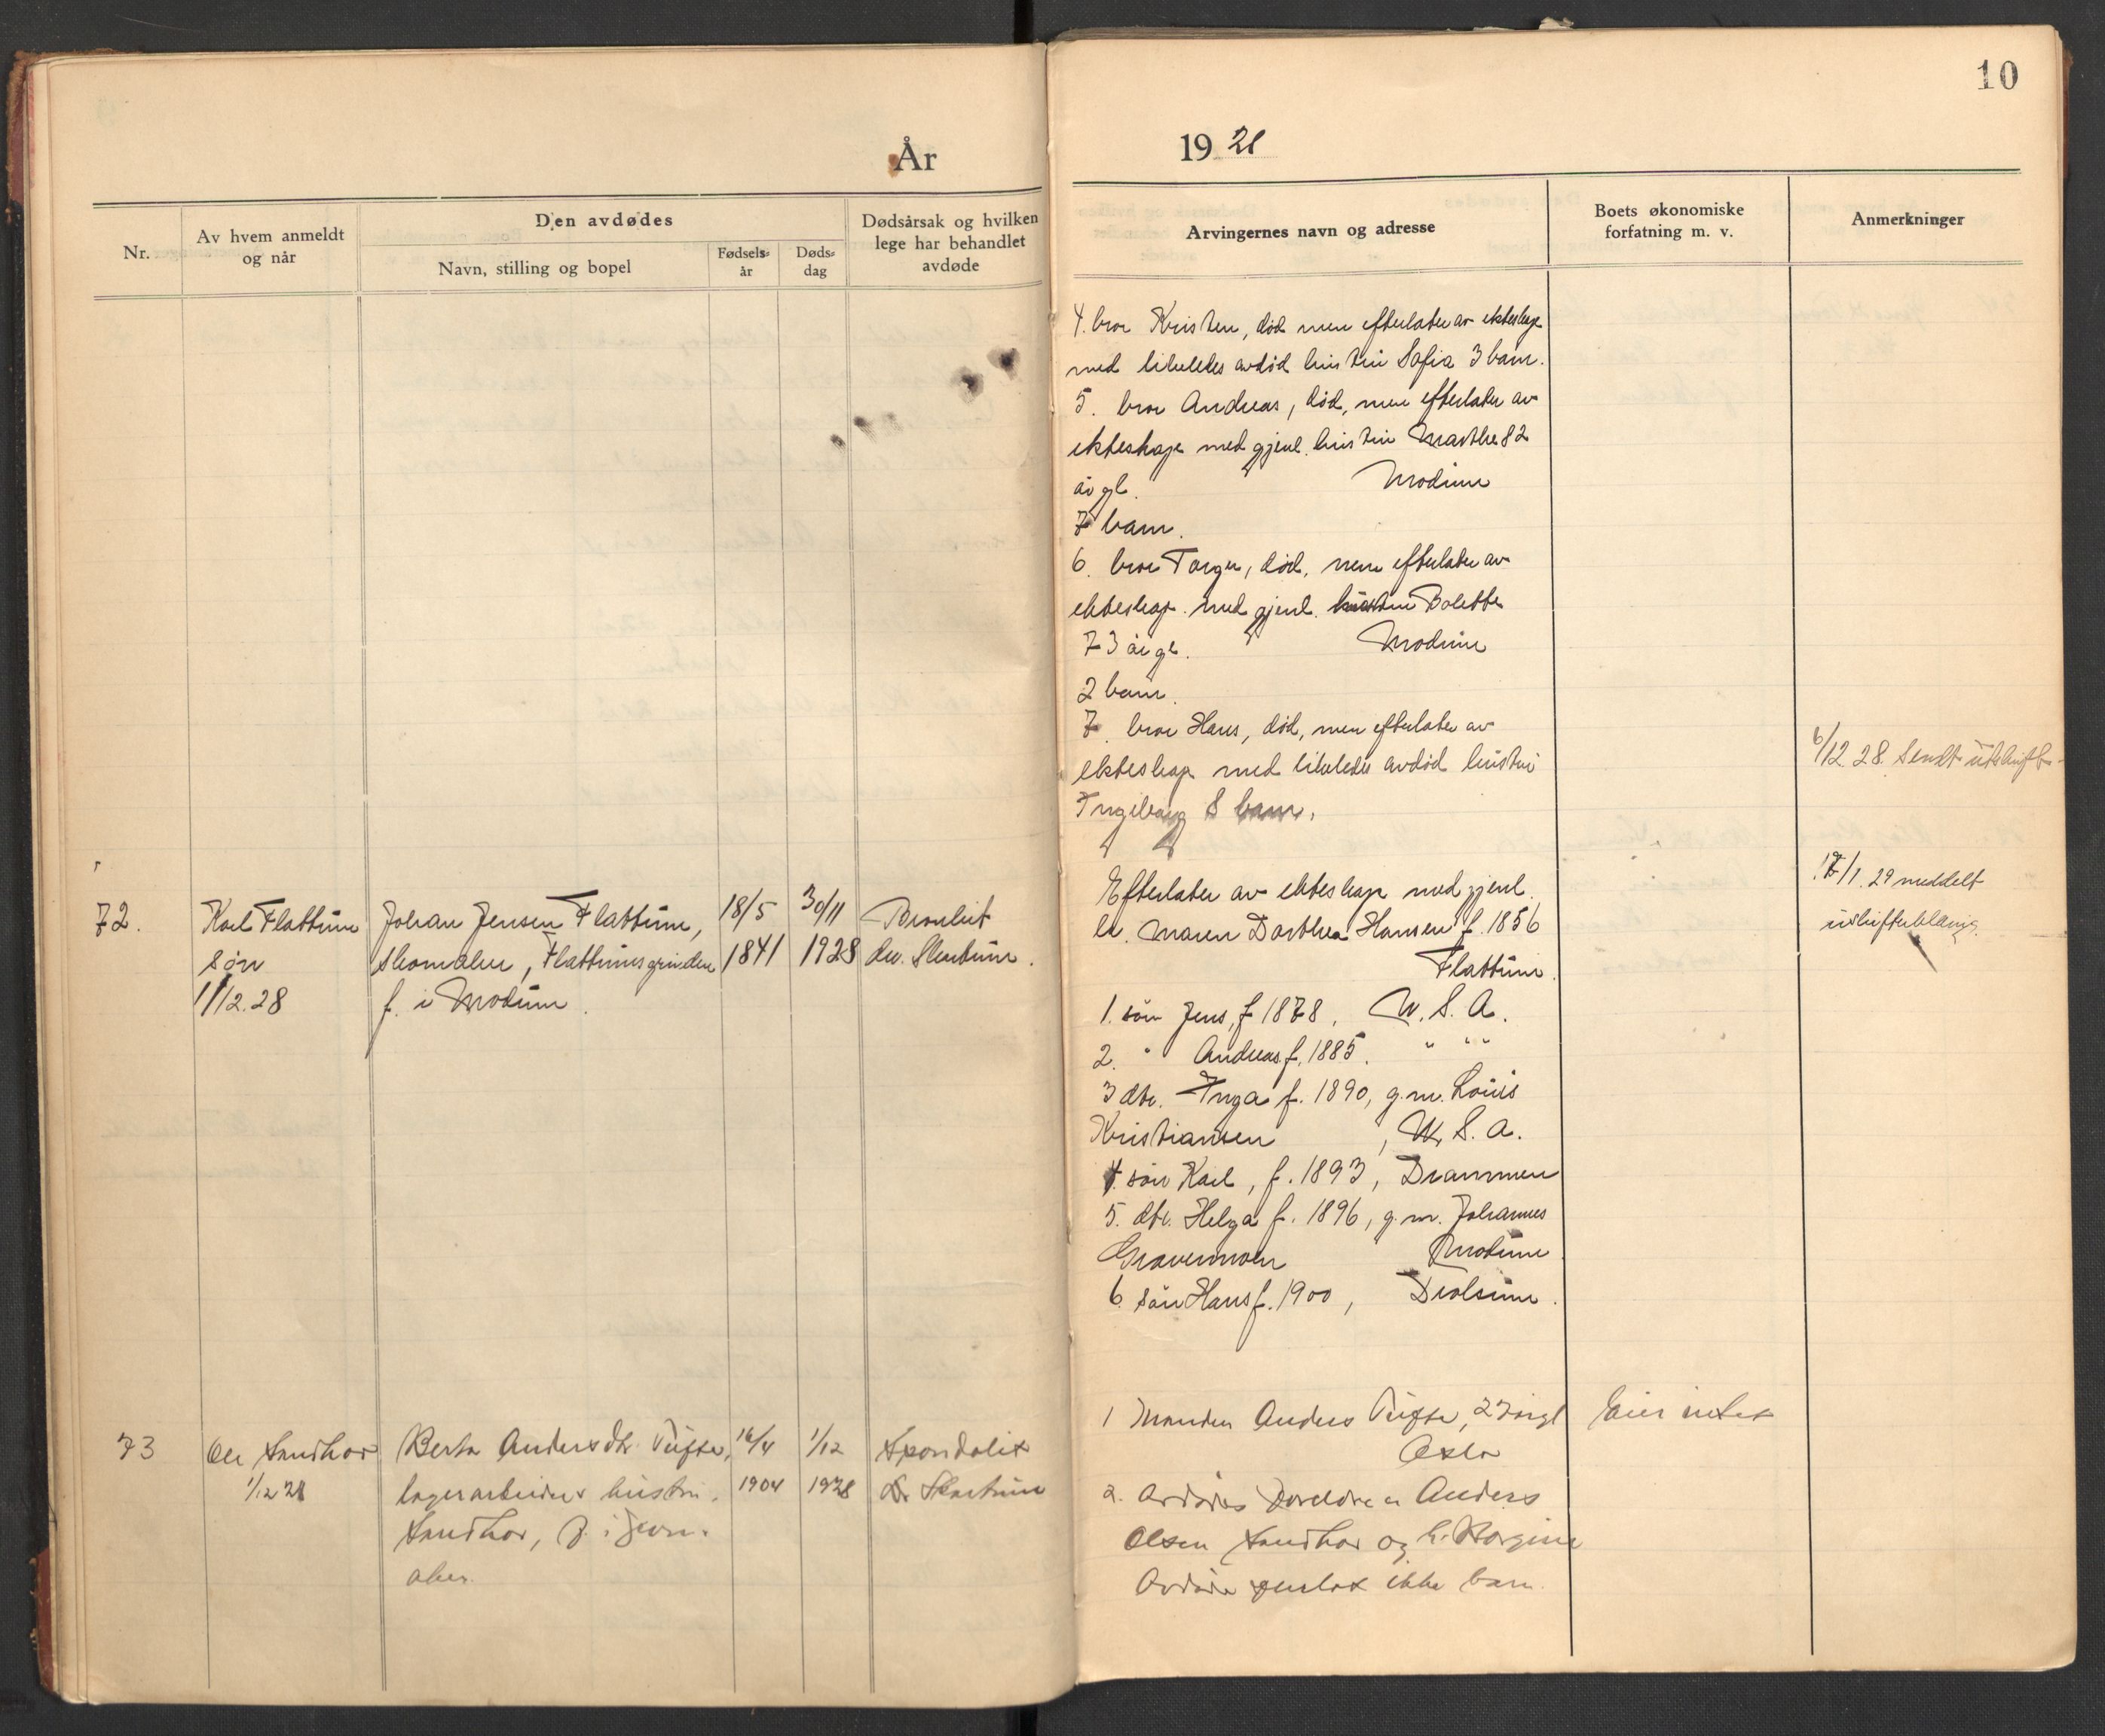 10
År
19 28
Nr.
Av hvem anmeldt
og når
Den avdødes
Navn, stilling og bopel
Fødsels-
år
Døds-
dag
Dødsårsak og hvilken
lege har behandlet
avdøde
Arvingernes navn og adresse
Boets økonomiske
forfatning m. v.
Anmerkninger
4. bror Kristen, død men efterlater av ekteskap
med likeledes avdød hustru Sofia 3 barn.
5. bror Andreas, død, men efterlater av
ekteskap med gjenl. hustru Marthe 82
år gl. Modum
7 barn.
6. bror Torger, død, men efterlater av
ekteskap med gjenl. hustru Bolette
73 år gl. Modum
2 barn.
7. bror Hans, død, men efterlater av
ekteskap med likeledes avdød hustru
Ingeborg 8 barn.
6/12.28 Sendt utskift
72.
Karl Flattum
søn
1/12.28
Johan Jensen Flattum,
skomaker, Flattumsgrinden
f. i Modum.
18/5
1841
30/11
1928
Bronkit
dr. Skartum.
Efterlater av ekteskap med gjenl.
h. Maren Dorthea Hansen f. 1856
Flattum.
1. søn Jens, f 1878, U. S. A.
2. " Andreas f. 1885. " " "
3 dtr. Inga f. 1890, g.m. Louis
Kristiansen, U. S. A.
4. søn Karl, f. 1893, Drammen
5. dtr. Helga f. 1896, g. m. Johannes
Gravermoen Modum
6. søn Hans f. 1900, Drolsum.
/1.29 meddelt
73
Ole Sandhov
1/12 28
Berta Andersdtr. Tufte,
lagerarbeiders hustru.
Sandhov, f. i Jevn-
aker.
16/4
1904
1/12
1928
Spondolit
Dr Skartum
1 Manden Anders Tufte, 27 årgl
Oslo
2. Avdødes foreldre er Anders
Olsen Sandhov og h. Borgine
Avdøde efterlot ikke barn.
Eier intet